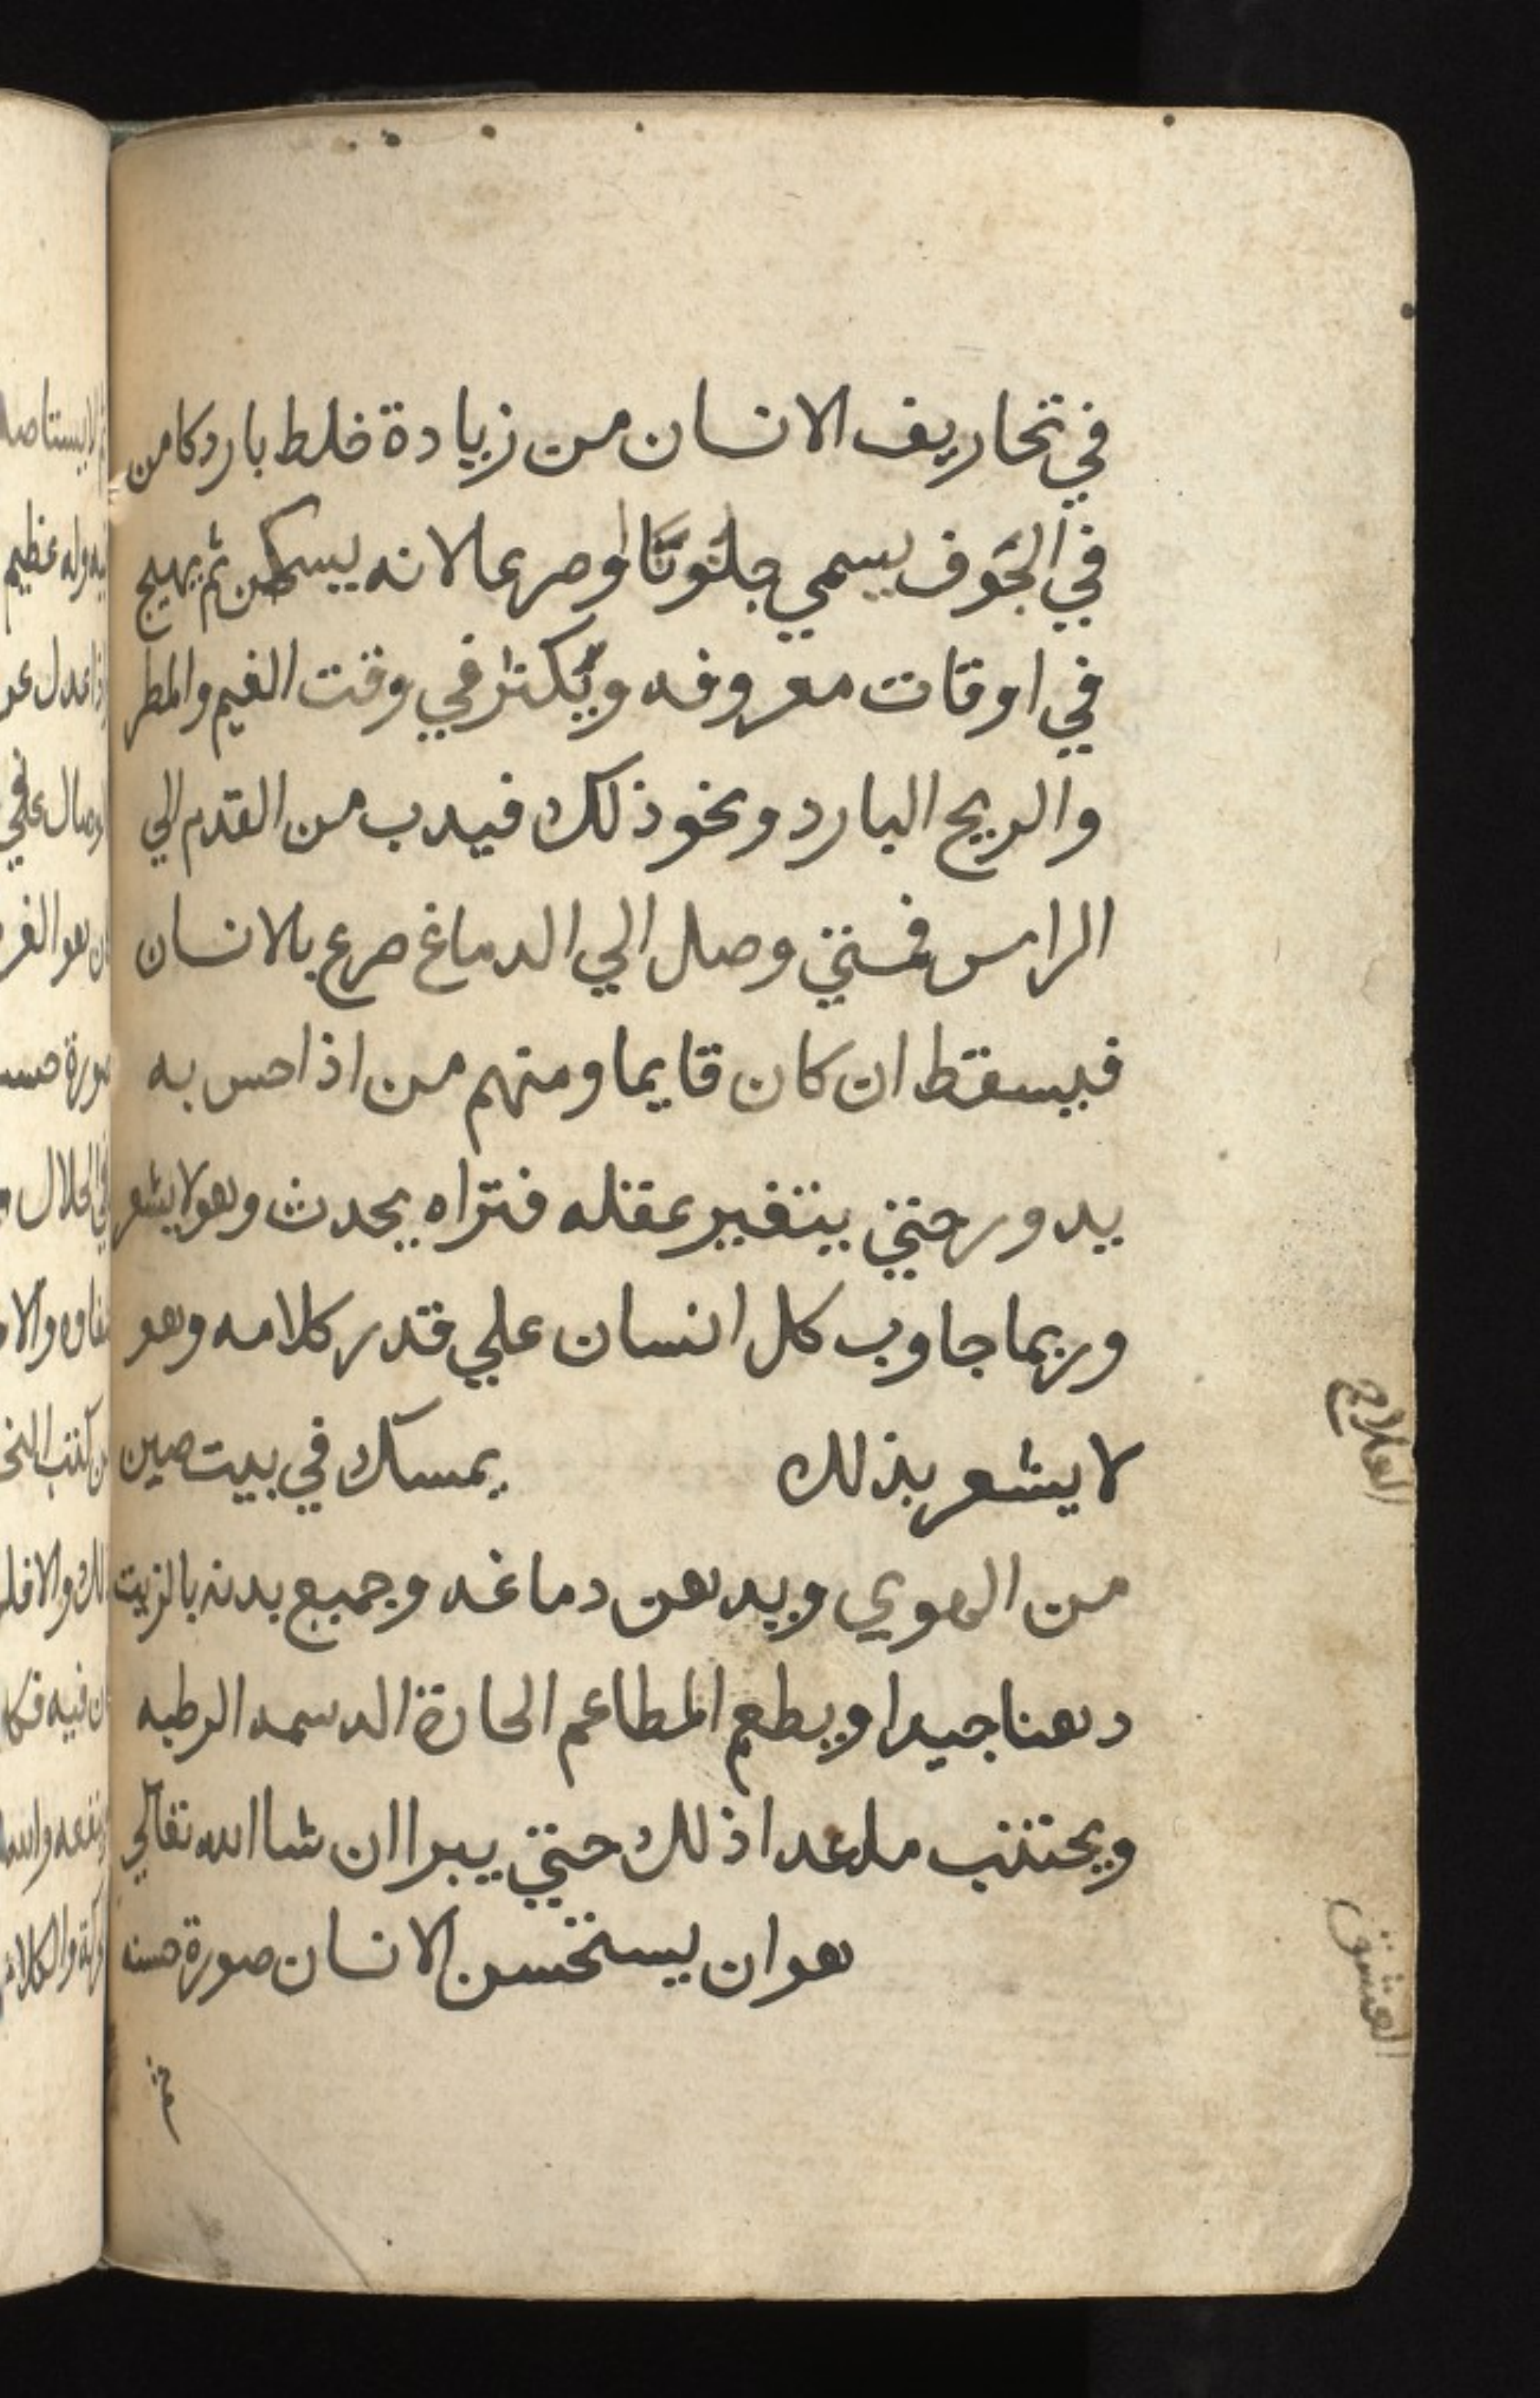 في تحاريف الانسان من زيادة خلط بارد كامن
في الجوف يسمي جلنوتا اوصرعا لانه يسكن ثم يهيج
في اوقات معروفه ويكثر في وقت الغيم والمطر
والريح البارد ونحو ذلك فيدب من القدم الي
الراس فمتي وصل الي الدماغ صرع بالانسان
فيسقط ان كان قايما ومنهم من اذا احس به
يدور حتي يتغير عقله فتراه يحدث وهو لا يشعر
وربما جاوب كل انسان علي قدر كلامه وهو
لا يشعر بذلك يمسك في بيت صين
العلاج
من الهوي ويدهن دماغه وجميع بدنه بالزيت
دهنا جيدا ويطعم المطاعم الحارة الدسمه الرطبه
ويجتنب ما عدا ذلك حتي يبرا ان شا الله تعالي
العشق
هو ان يستحسن الانسان صورة حسنه
ثم